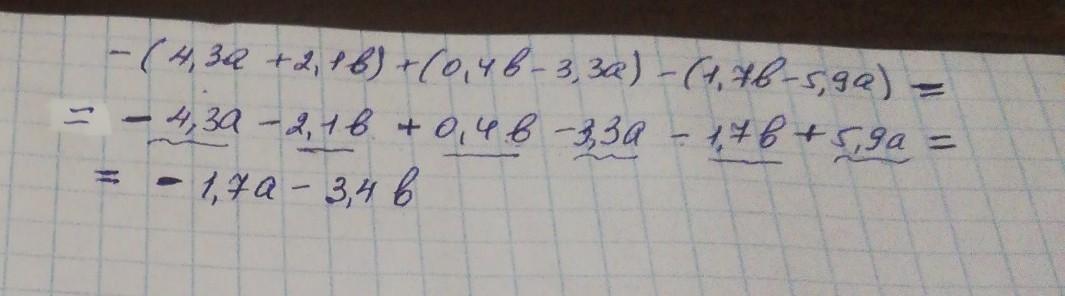 -(4,3а +2,1в) +(0,4в-3,3а) -(1,7в-5,9а) =
= - 4,3а -2,1в + 0,4в -3,3а - 1,7в + 5,9а =
= - 1,7а - 3,4в